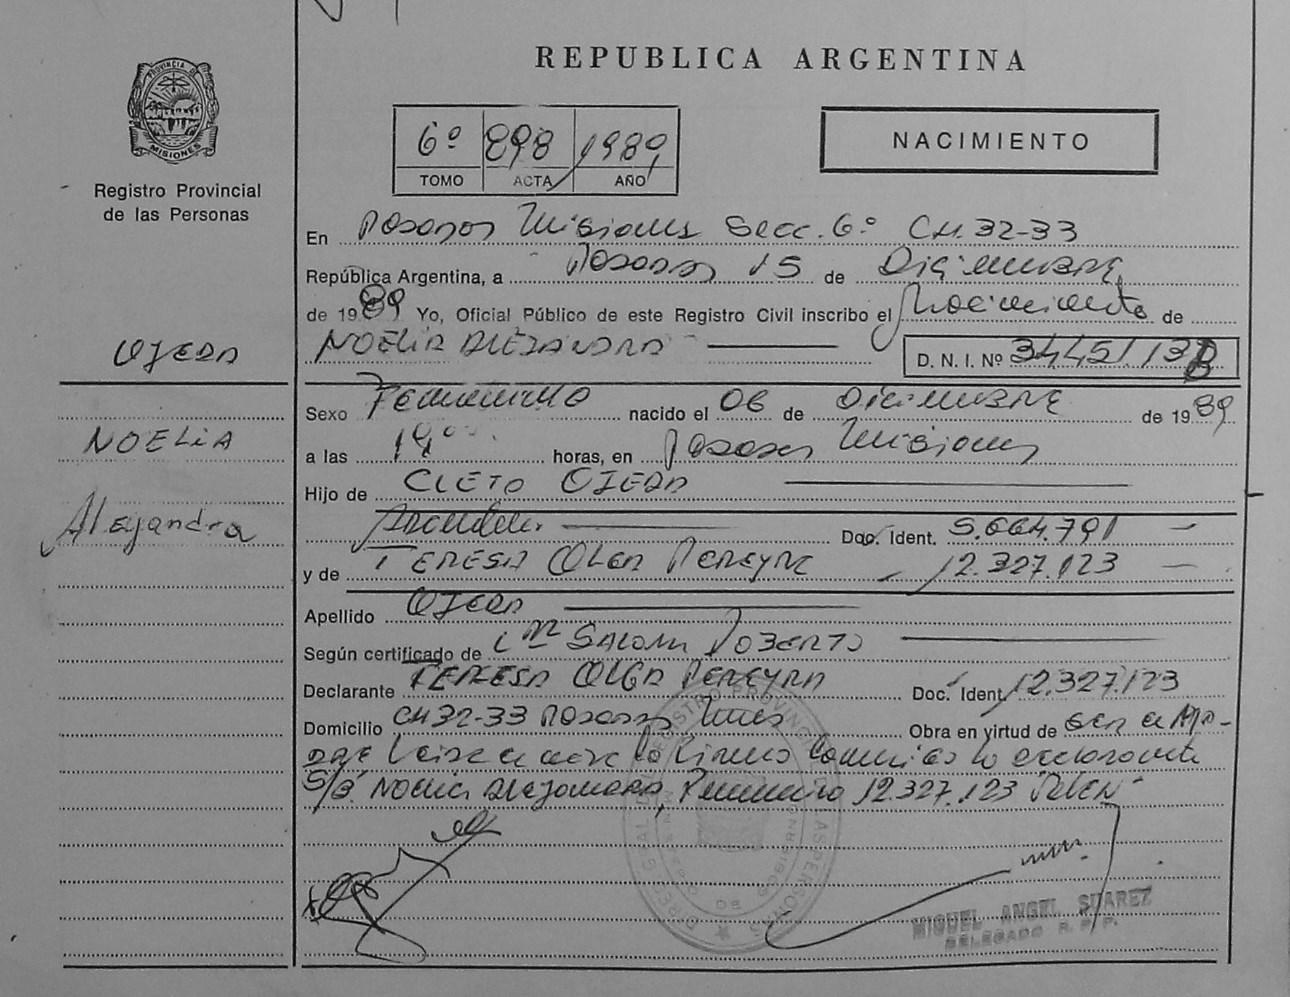 REPUBLICA ARGENTINA
PROVINCIA DE
MISIONES
Registro Provincial
de las Personas
6º 898 1989
TOMO ACTA AÑO
NACIMIENTO
En Posadas Misiones Secc. 6º CH. 32-33
República Argentina, a Posadas 15 de Diciembre
de 1989 Yo, Oficial Público de este Registro Civil inscribo el Nacimiento de
OJEDA
NOELIA ALEJANDRA D. N. I. Nº
Sexo Femenino nacido el 06 de Diciembre de 1989
NOELIA
a las 19 horas, en Posadas Misiones
Hijo de CLETO OJEDA
Alejandra
Doc. Ident. 5.664.791
y de TERESA OLGA PEREYRA 12.327.123
Apellido OJEDA
Según certificado de ROBERTO
Declarante TERESA OLGA PEREYRA Doc. Ident. 12.327.123
Domicilio CH 32-33 Posadas Mnes Obra en virtud de ser
la declarante
Noelia Alejandra, Femenino 12.327.123
MIGUEL ANGEL SUAREZ
DELEGADO R. P. P.